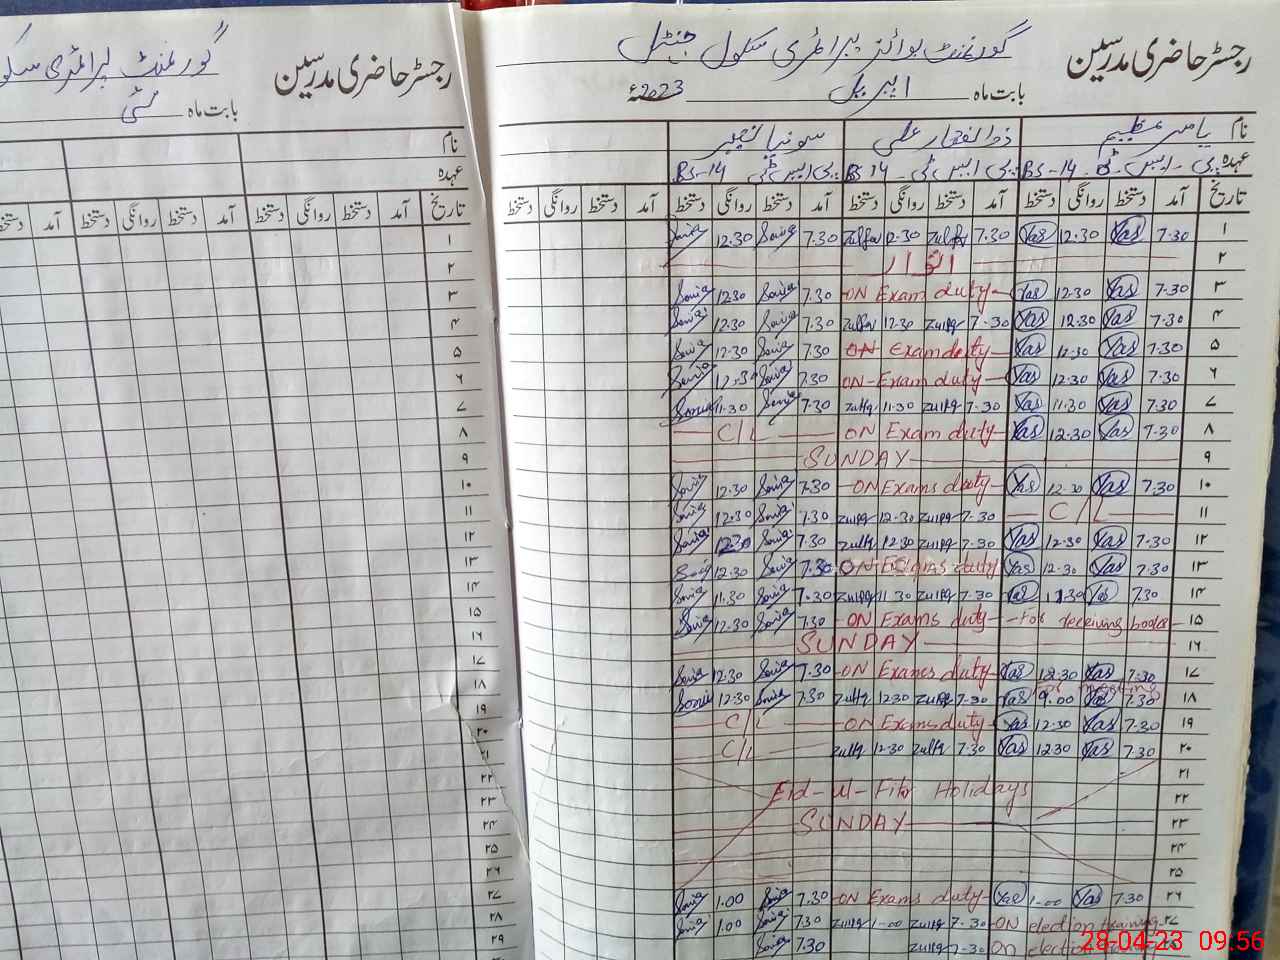 رجسٹر حاضری مدرسین گورنمنٹ بوائز پرائمری سکول
بابت ماہ اپریل 2023ء
نام یاسر عظیم ذوالفقار علی سونیا نصیر
عہدہ پی۔ایس۔ٹی۔ BS-14 پی ایس ٹی۔ BS 14 پی ایس ٹی BS-14
تاریخ آمد دستخط روانگی دستخط آمد دستخط روانگی دستخط آمد دستخط روانگی دستخط آمد دستخط روانگی دستخط
۱ 7.30 Yas 12.30 Yas 7.30 Zulfqr 12.30 Zulfqr 7.30 Sonia 12.30 Sonia
۲ اتوار
۳ 7.30 Yas 12.30 Yas ON Exam duty 7.30 Sonia 12.30 Sonia
۴ 7.30 Yas 12.30 Yas 7.30 Zulfq 12.30 Zulfqr 7.30 Sonia 12.30 Sonia
۵ 7.30 Yas 12.30 Yas ON Exam duty 7.30 Sonia 12.30 Sonia
۶ 7.30 Yas 12.30 Yas ON Exam duty 7.30 Sonia 12.30 Sonia
۷ 7.30 Yas 11.30 Yas 7.30 Zulfq 11.30 Zulfq 7.30 Sonia 11.30 Sonia
۸ 7.30 Yas 12.30 Yas ON Exam duty C/L
۹ SUNDAY
۱۰ 7.30 Yas 12.30 Yas ON Exams duty 7.30 Sonia 12.30 Sonia
۱۱ C/L 7.30 Zulfq 12.30 Zulfq 7.30 Sonia 12.30 Sonia
۱۲ 7.30 Yas 12.30 Yas 7.30 Zulfq 12.30 Zulfq 7.30 Sonia 12.30 Sonia
۱۳ 7.30 Yas 12.30 Yas ON Exams duty 7.30 Sonia 12.30 Sonia
۱۴ 7.30 Yas 11.30 Yas 7.30 Zulfq 11.30 Zulfq 7.30 Sonia 11.30 Sonia
۱۵ For receiving books ON Exams duty 7.30 Sonia 12.30 Sonia
۱۶ SUNDAY
۱۷ 7.30 Yas 12.30 Yas ON Exames duty 7.30 Sonia 12.30 Sonia
For meeting
۱۸ 7.30 Yas 9.00 Yas 7.30 Zulfq 12.30 Zulfq 7.30 Sonia 12.30 Sonia
۱۹ 7.30 Yas 12.30 Yas ON Exams duty C/L
۲۰ 7.30 Yas 12.30 Yas 7.30 Zulfq 12.30 Zulfq C/L
۲۱
۲۲ Eid-ul-Fitr Holidays
۲۳ SUNDAY
۲۴
۲۵
۲۶ 7.30 Yas 1.00 Yas ON Exams duty 7.30 Sonia 1.00 Sonia
۲۷ ON election training 7.30 Zulfq 1.00 Zulfq 7.30 Sonia 1.00 Sonia
ON election 7.30 Zulfq 7.30 Sonia
رجسٹر حاضری مدرسین گورنمنٹ پرائمری سکو
بابت ماہ مئی
نام
عہدہ
تاریخ آمد دستخط روانگی دستخط آمد دستخط روانگی دستخط آمد دستخط
۱
۲
۳
۴
۵
۶
۷
۸
۹
۱۰
۱۱
۱۲
۱۳
۱۴
۱۵
۱۶
۱۷
۱۸
۱۹
۲۰
۲۱
۲۲
۲۳
۲۴
۲۵
۲۶
۲۷
۲۸
۲۹
۳۰
28-04-23 09:56